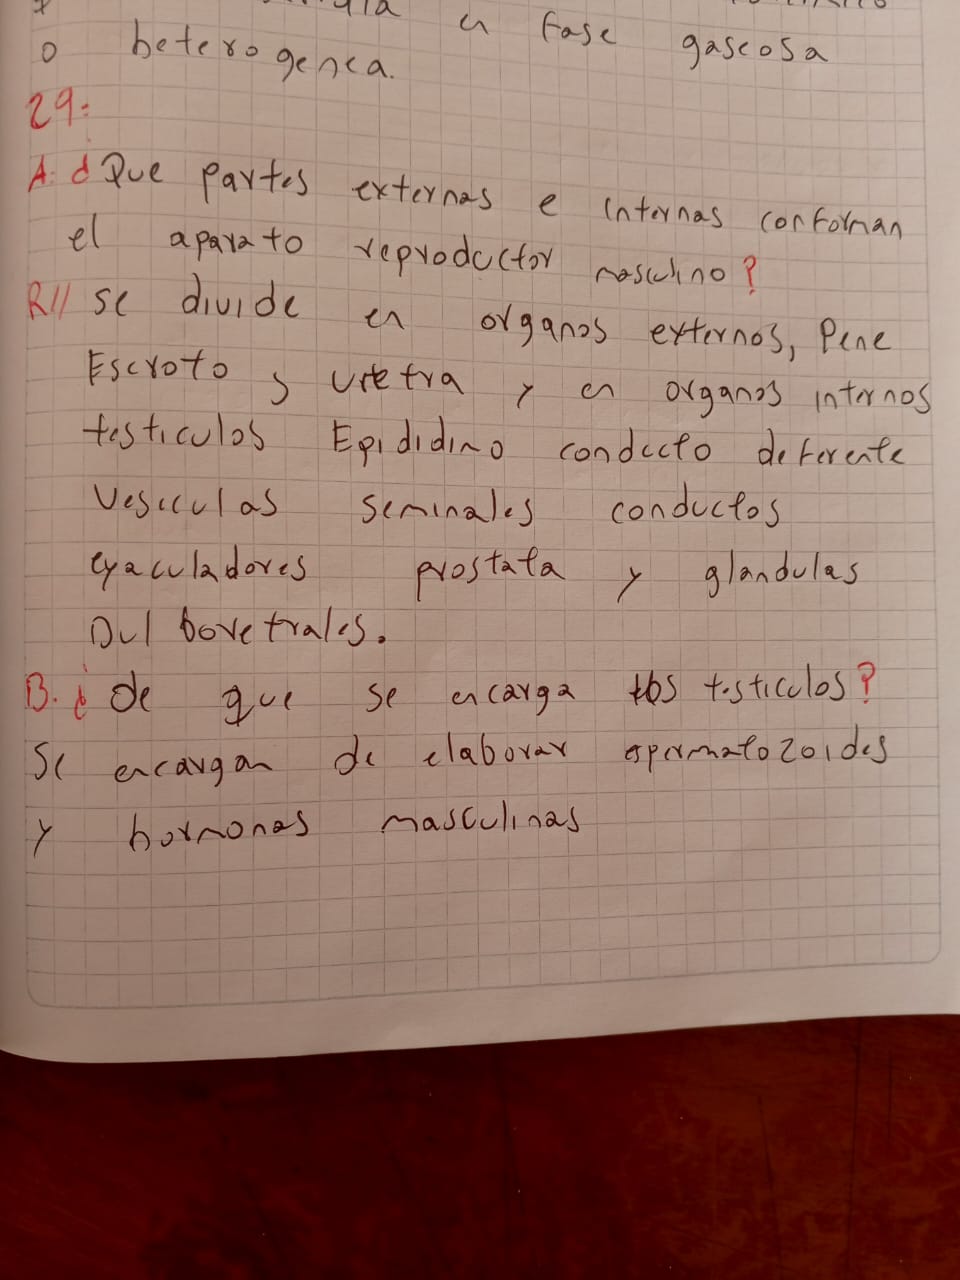 en fase gaseosa
o heterogenea.
29:
A: ¿Que partes externas e internas conforman
el aparato reproductor masculino?
R// se divide en organos externos, Pene
Escroto y uretra y en organos internos
testiculos Epididino conducto deferente
vesiculas seminales conductos
eyaculadores prostata y glandulas
bulbovretrales.
B. ¿ de que se encarga los testiculos?
Se encargan de elaborar espermatozoides
y hormonas masculinas